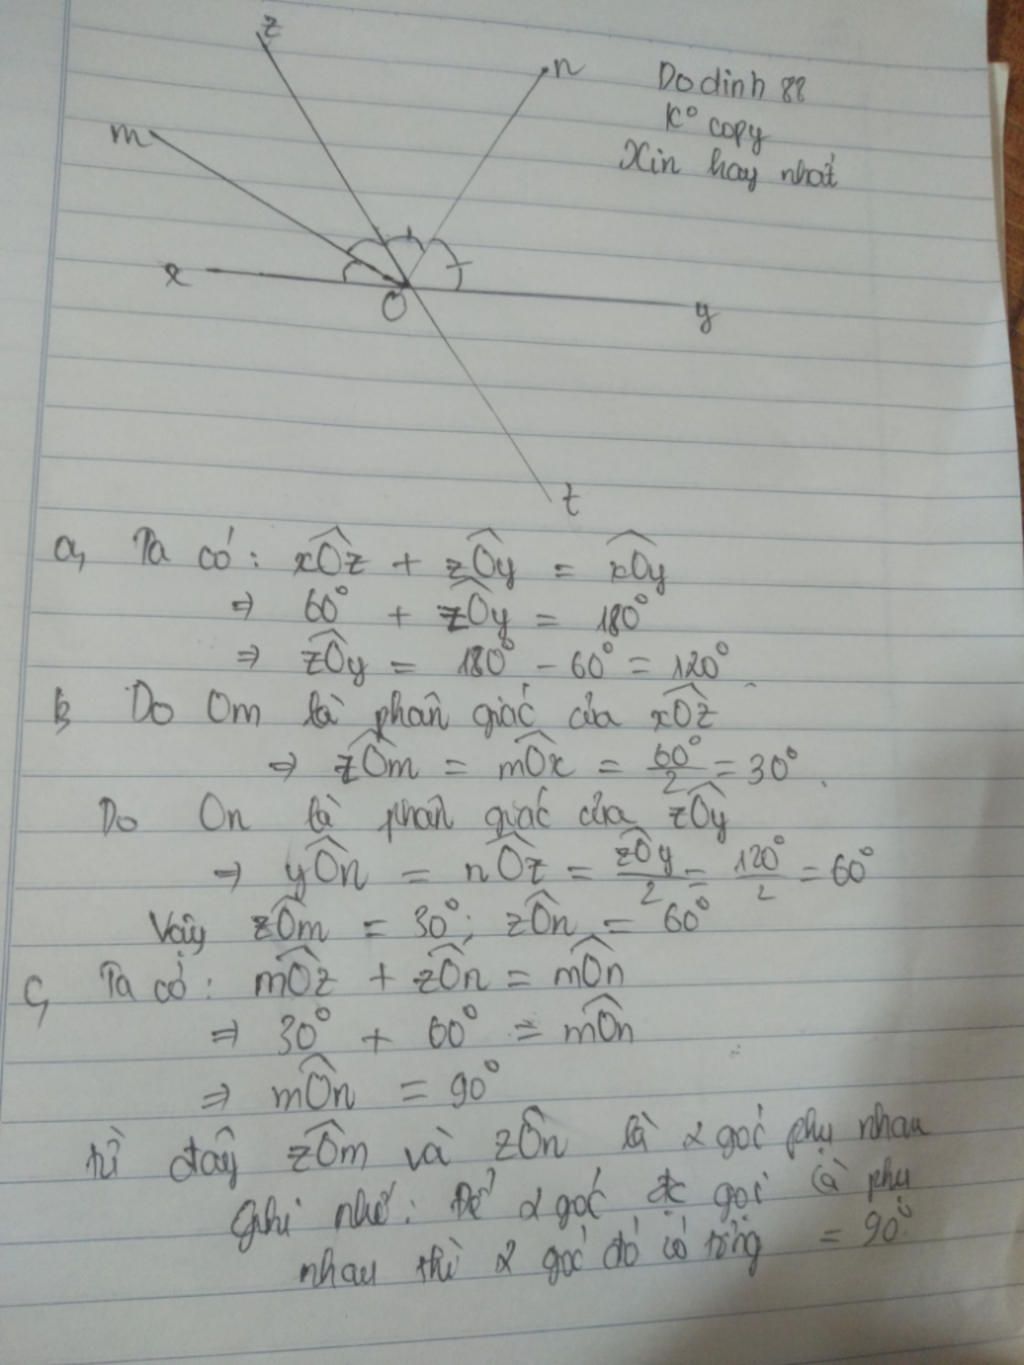 z
n
m
x
O
y
t
Dodinh 88
K° copy
Xin hay nhất
a, Ta có: xOz + zOy = xOy
⇒ 60° + zOy = 180°
⇒ zOy = 180° - 60° = 120°
b, Do Om là phân giác của xOz
⇒ zOm = mOx = 60°/2 = 30°.
Do On là phân giác của zOy
⇒ yOn = nOz = zOy/2 = 120°/2 = 60°
Vậy zOm = 30°; zOn = 60°
c, Ta có: mOz + zOn = mOn
⇒ 30° + 60° = mOn
⇒ mOn = 90°
từ đây zOm và zOn là 2 góc phụ nhau
Ghi nhớ: Để 2 góc đc gọi là phụ
nhau thì 2 góc đó có tổng = 90°